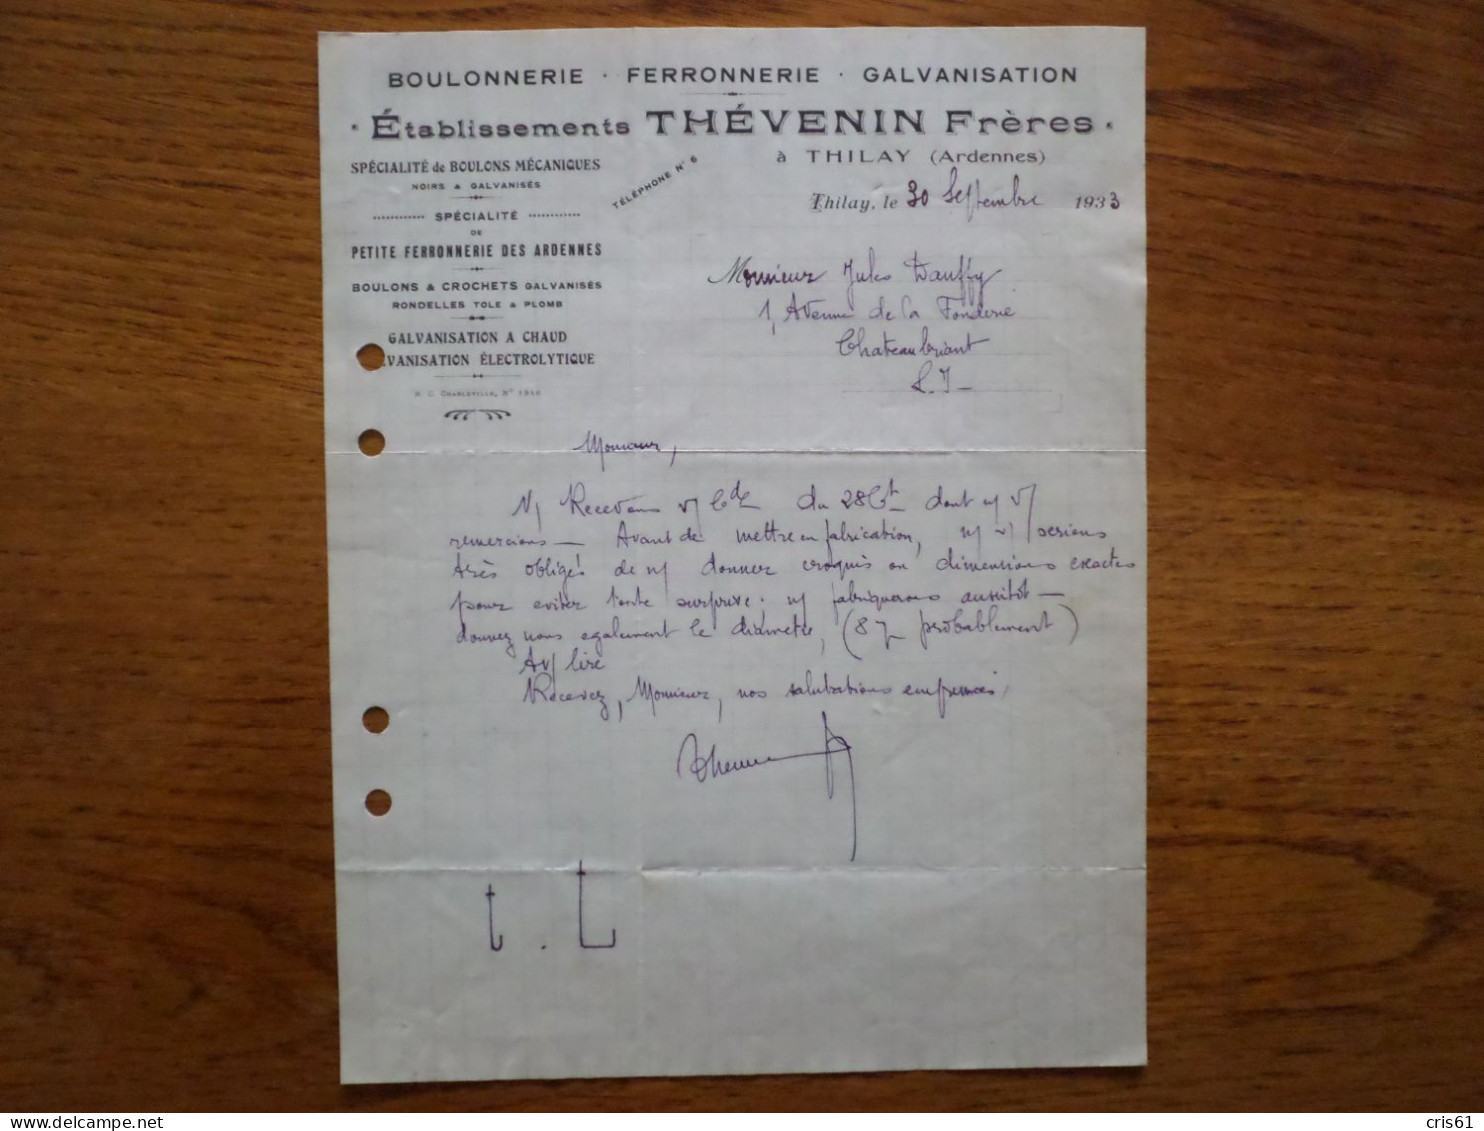 BOULONNERIE · FERRONNERIE · GALVANISATION
Établissements THÉVENIN Frères
à THILAY (Ardennes)
TÉLÉPHONE N° 6
SPÉCIALITÉ de BOULONS MÉCANIQUES
NOIRS & GALVANISÉS
SPÉCIALITÉ
DE
PETITE FERRONNERIE DES ARDENNES
BOULONS & CROCHETS GALVANISÉS
RONDELLES TOLE & PLOMB
GALVANISATION A CHAUD
VANISATION ÉLECTROLYTIQUE
R. C. CHARLEVILLE, N° 1916
Thilay, le 30 Septembre 1933
Monsieur Jules Dauffy
1, Avenue de la Fonderie
Chateaubriant
L. I
Monsieur,
N/ Recevons v/ Cde du 28 Ct dont n/ v/
remercions — Avant de mettre en fabrication, n/ v/ serions
très obligés de n/ donner croquis ou dimensions exactes
pour eviter toute surprise. n/ fabriquerons aussitôt —
donnez nous egalement le diametre, (8 probablement)
A v/ lire
Recevez, Monsieur, nos salutations empressées
t . t
delcampe.net
cris61